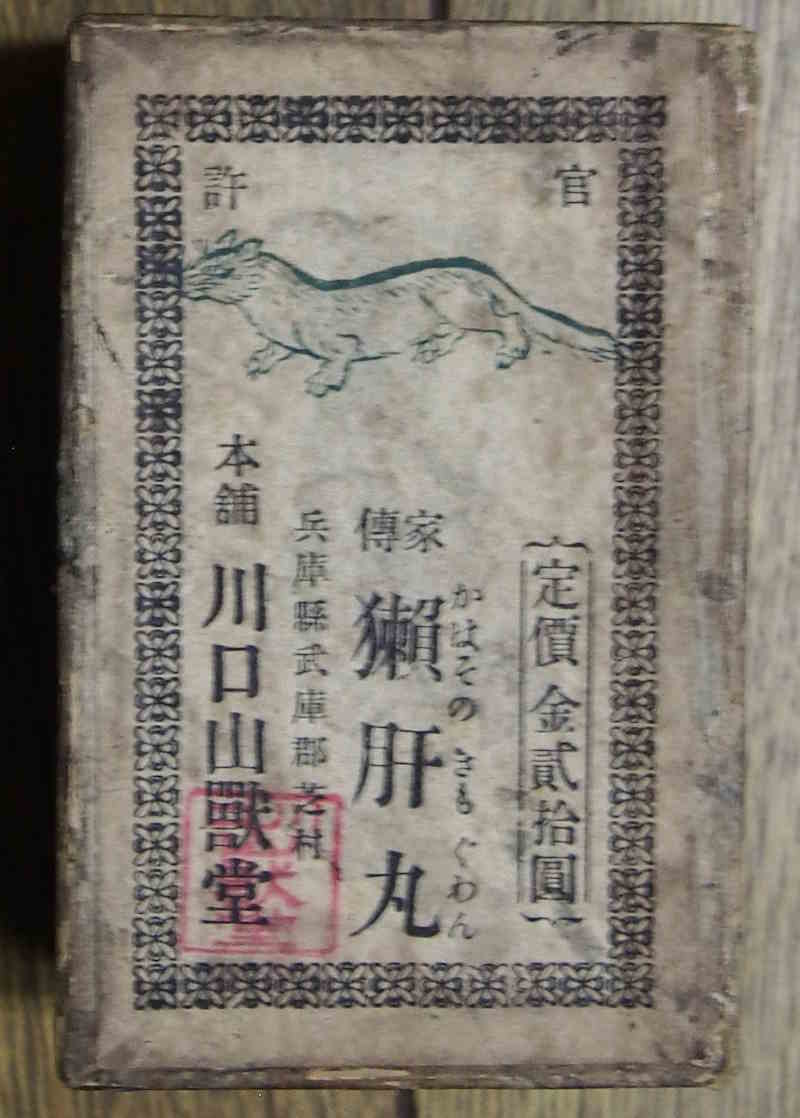 官許
定價金貳拾圓
家傳
獺肝丸
かはそのきもぐわん
兵庫縣武庫郡芝村
本舖
川口山獸堂